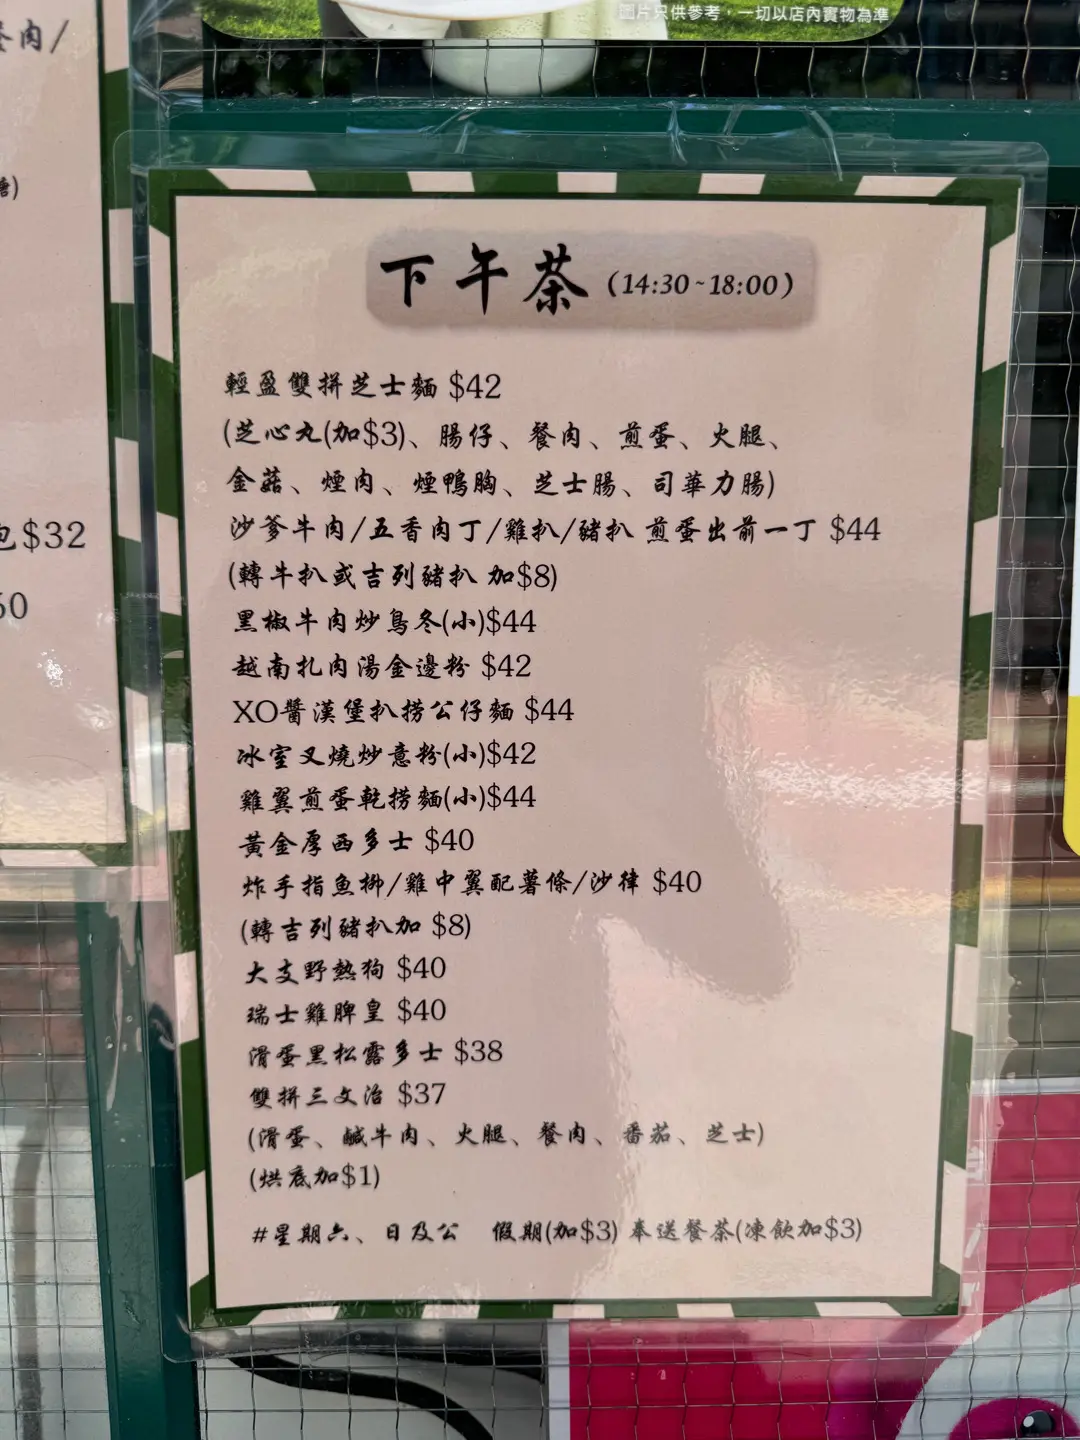 圖片只供參考，一切以店內實物為準
餐肉/
糖)
包$32
60
下午茶 (14:30~18:00)
輕盈雙拼芝士麵 $42
(芝心丸(加$3)、腸仔、餐肉、煎蛋、火腿、
金菇、煙肉、煙鴨胸、芝士腸、司華力腸)
沙爹牛肉/五香肉丁/雞扒/豬扒 煎蛋出前一丁 $44
(轉牛扒或吉列豬扒 加$8)
黑椒牛肉炒烏冬(小)$44
越南扎肉湯金邊粉 $42
XO醬漢堡扒撈公仔麵 $44
冰室叉燒炒意粉(小)$42
雞翼煎蛋乾撈麵(小)$44
黃金厚西多士 $40
炸手指魚柳/雞中翼配薯條/沙律 $40
(轉吉列豬扒加 $8)
大支野熱狗 $40
瑞士雞脾皇 $40
滑蛋黑松露多士 $38
雙拼三文治 $37
(滑蛋、鹹牛肉、火腿、餐肉、番茄、芝士)
(烘底加$1)
#星期六、日及公　假期(加$3) 奉送餐茶(凍飲加$3)